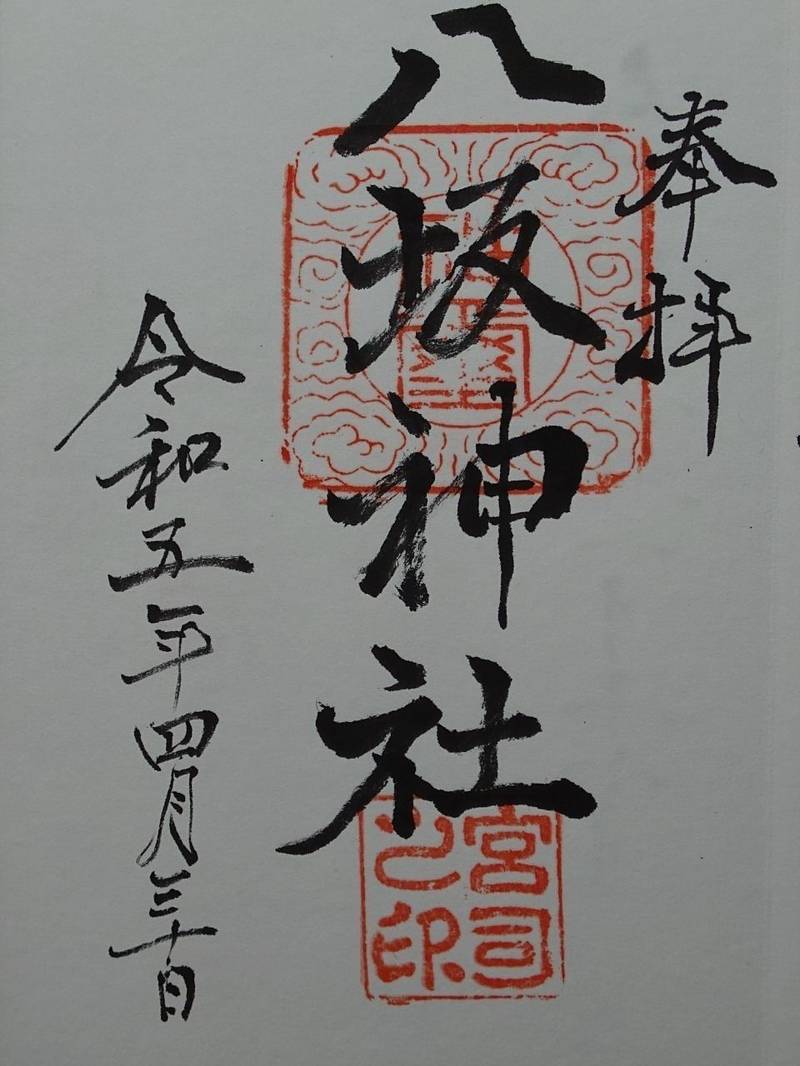 奉拝
八坂神社
宮司
之印
令和五年四月三十日